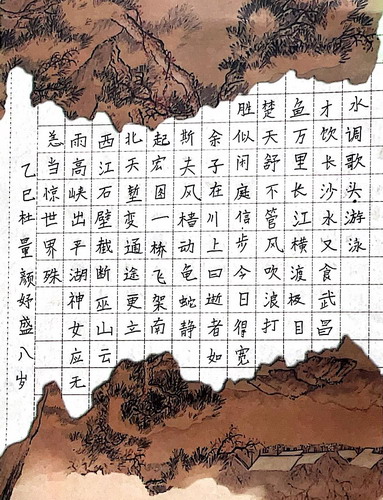 水调歌头·游泳
才饮长沙水又食武昌
鱼万里长江横渡极目
楚天舒不管风吹浪打
胜似闲庭信步今日得宽
余子在川上曰逝者如
斯夫风樯动龟蛇静
起宏图一桥飞架南
北天堑变通途更立
西江石壁截断巫山云
雨高峡出平湖神女应无
恙当惊世界殊
乙巳杜量颜妤盛八岁